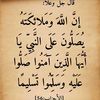 قال جل وعلا:
إِنَّ اللَّهَ وَمَلَائِكَتَهُ
يُصَلُّونَ عَلَى النَّبِيِّ يَا
أَيُّهَا الَّذِينَ آمَنُوا صَلُّوا
عَلَيْهِ وَسَلِّمُوا تَسْلِيمًا